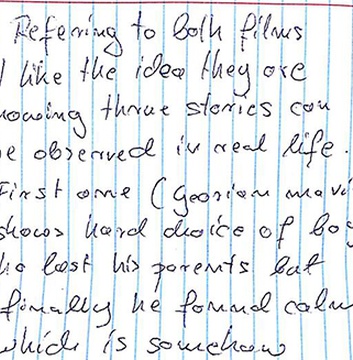 Refering to both films
I like the idea they are
howing thrue stories can
e observed in real life.
First one (Georian movi
shows hard choice of bo
ho lost his parents but
finally he found calm
which is somehow